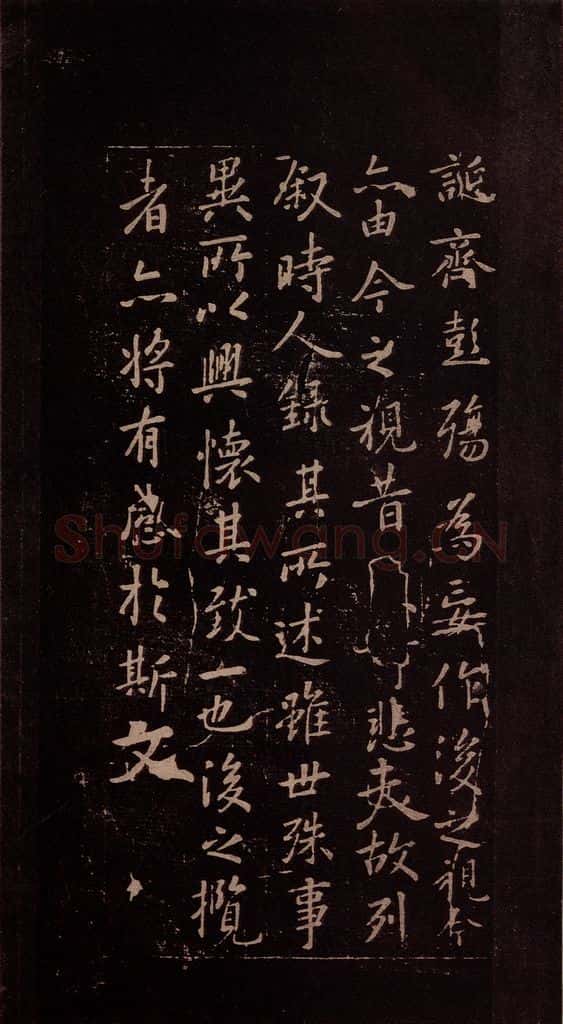 誕齊彭殤為妄作後之視今
亦由今之視昔悲夫故列
叙時人錄其所述雖世殊事
異所以興懷其致一也後之攬
者亦將有感於斯文
Shufawang.CN